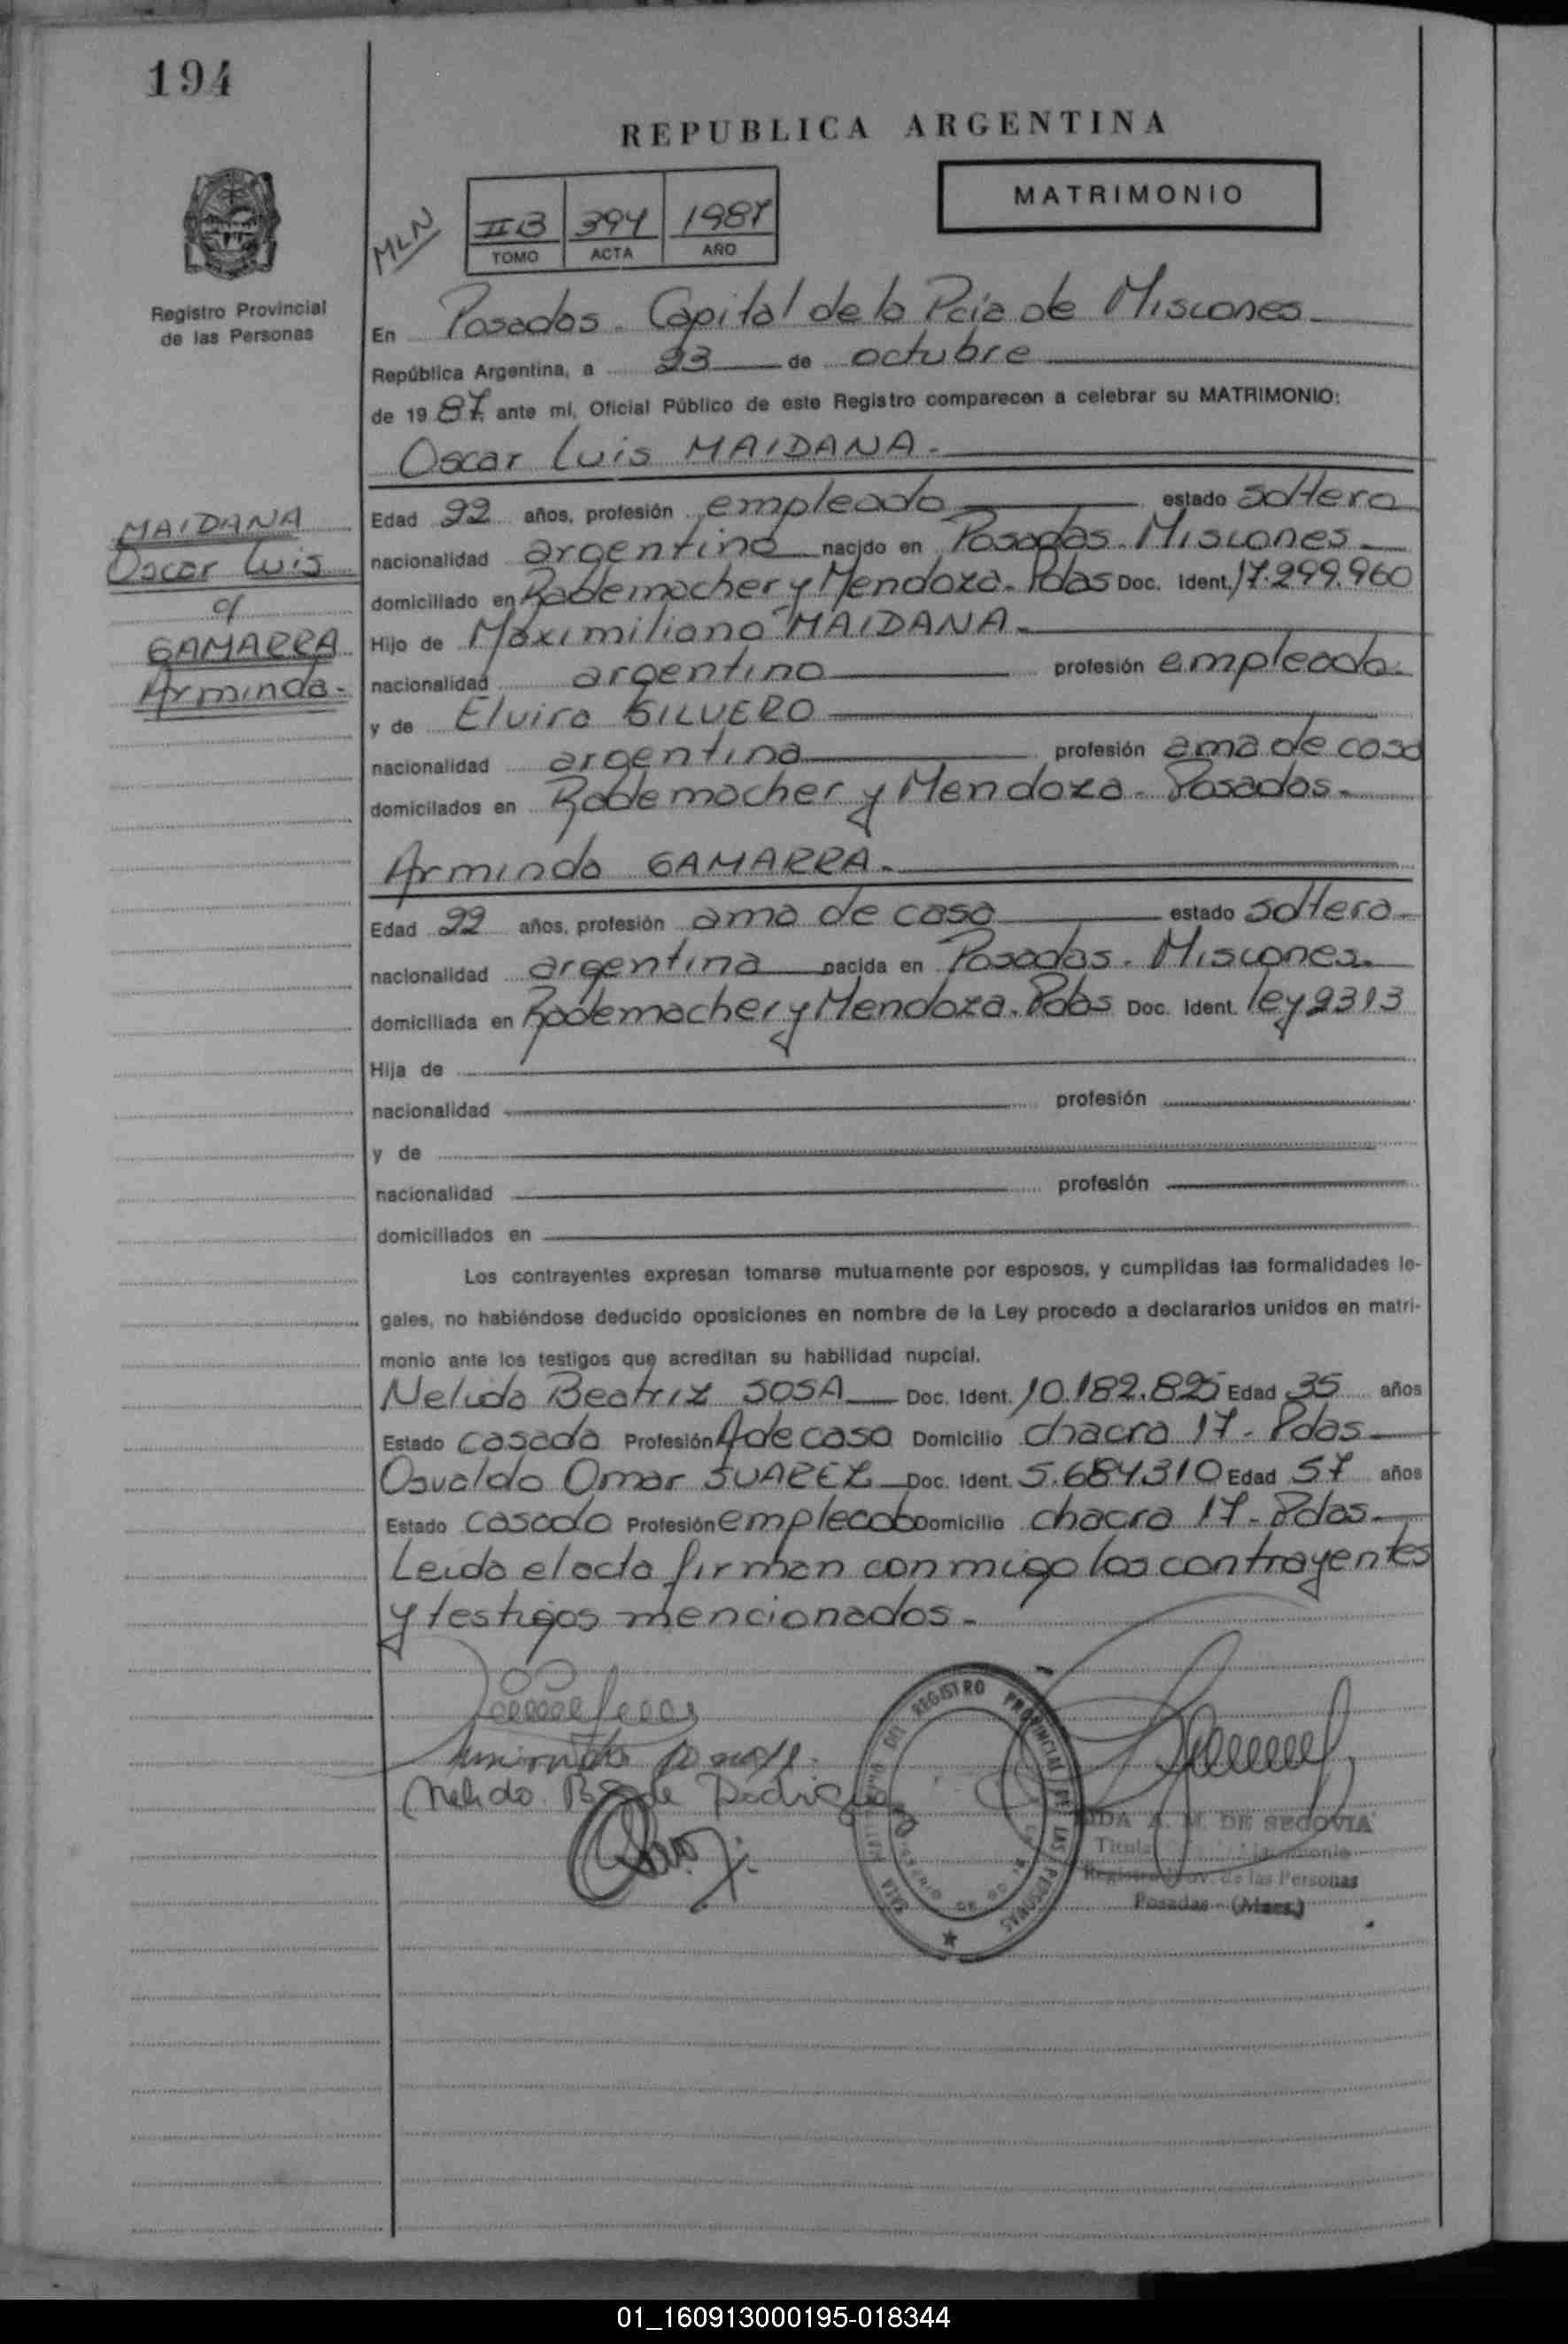 194
REPUBLICA ARGENTINA
MATRIMONIO
MLN
II B 394 1987
TOMO ACTA AÑO
Registro Provincial
de las Personas
En Posadas. Capital de la Pcia de Misiones
República Argentina, a 23 de octubre
de 1987 ante mí, Oficial Público de este Registro comparecen a celebrar su MATRIMONIO:
Oscar Luis MAIDANA.
MAIDANA
Oscar Luis
c/
GAMARRA
Arminda.
Edad 22 años, profesión empleado estado soltero
nacionalidad argentino nacido en Posadas. Misiones
domiciliado en Rademacher y Mendoza. Pdas Doc. Ident. 17.299.960
Hijo de Maximiliano MAIDANA.
nacionalidad argentino profesión empleado.
y de Elvira SILVERO
nacionalidad argentina profesión ama de casa
domicilados en Rademacher y Mendoza. Posadas.
Arminda GAMARRA.
Edad 22 años, profesión ama de casa estado soltera
nacionalidad argentina nacida en Posadas. Misiones.
domiciliada en Rademacher y Mendoza. Pdas Doc. Ident. ley 2313
Hija de
nacionalidad profesión
y de
nacionalidad profesión
domiciliados en
Los contrayentes expresan tomarse mutuamente por esposos, y cumplidas las formalidades le-
gales, no habiéndose deducido oposiciones en nombre de la Ley procedo a declararlos unidos en matri-
monio ante los testigos que acreditan su habilidad nupcial.
Nelida Beatriz SOSA Doc. Ident. 10.182.825 Edad 35 años
Estado casada Profesión A de casa Domicilio chacra 17. Pdas
Osvaldo Omar SUAREZ Doc. Ident. 5.684.310 Edad 57 años
Estado casado Profesión empleado Domicilio chacra 17. Pdas.
Leida el acta firman conmigo los contrayentes
y testigos mencionados.
Nelida B S de
DEL REGISTRO PROVINCIAL DE LAS PERSONAS
A. M. DE SEGOVIA
de las Personas
Posadas (Mnes.)
01_160913000195-018344